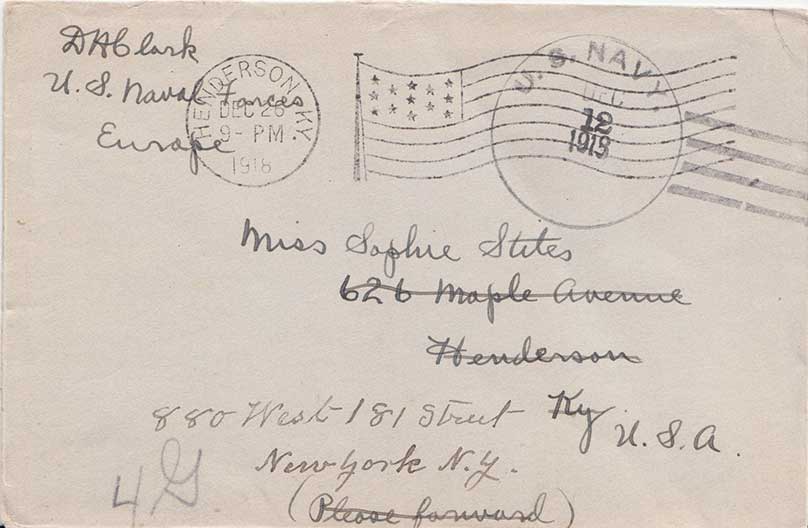 D H Clark
U. S. Naval Forces
Europe
HENDERSON, KY.
DEC 26
9 - PM
1918
U. S. NAVY
DEC
12
1918
Miss Sophie Stites
626 Maple Avenue
Henderson
Ky.
U. S. A.
880 West 181 Street
New York N.Y.
(Please forward)
4G